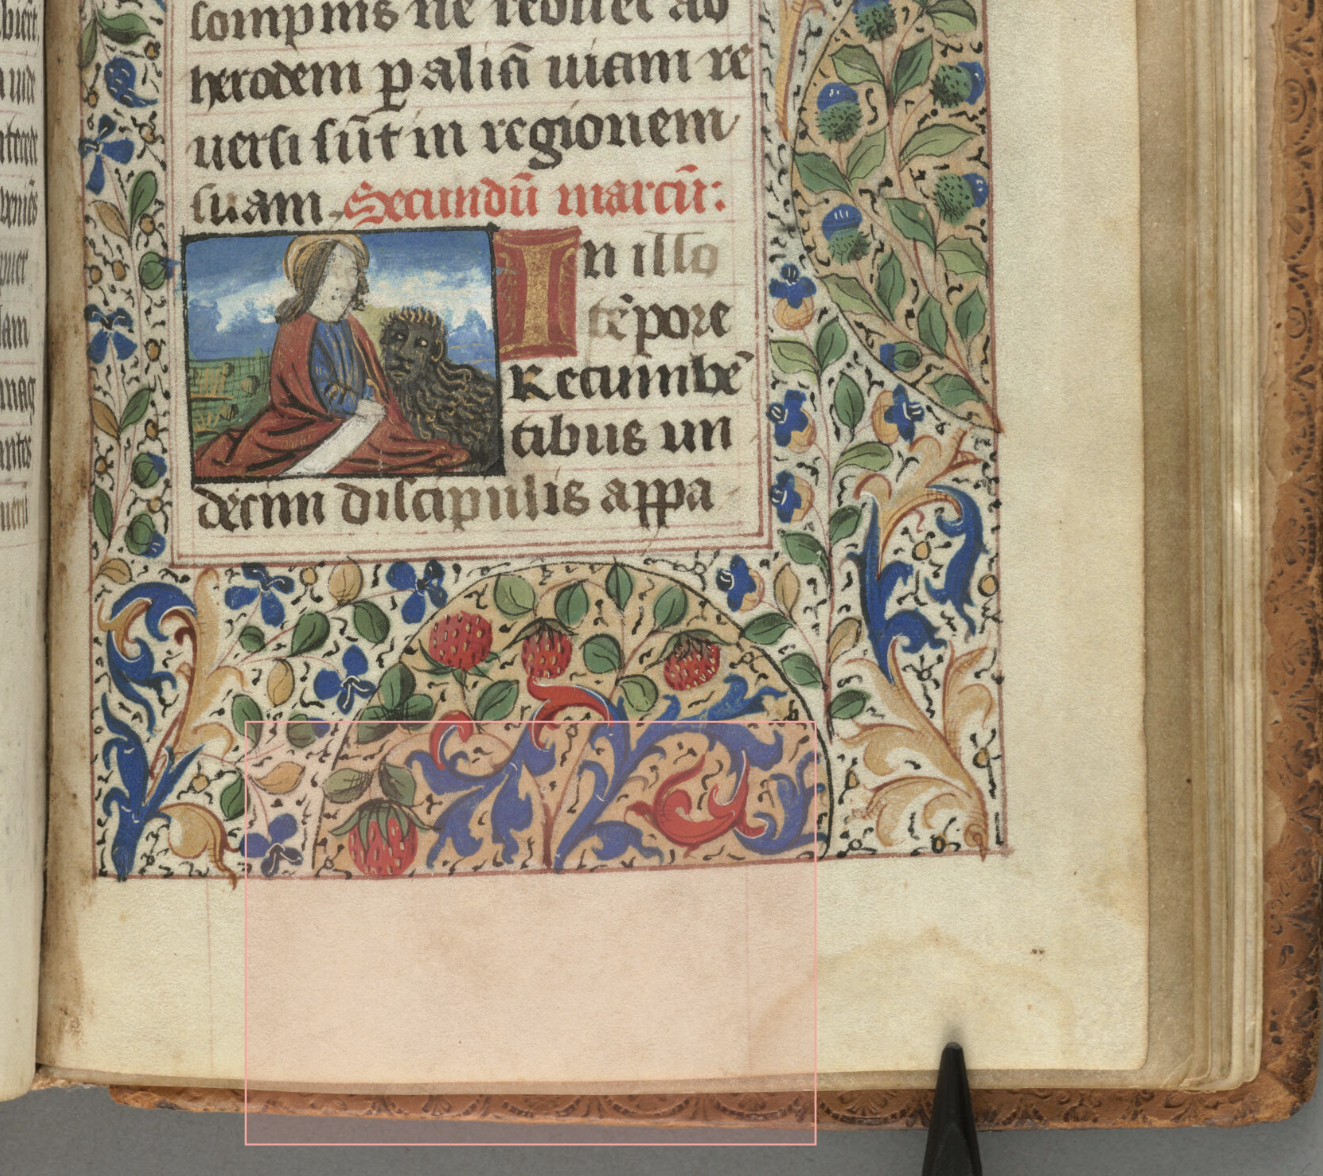 sompnis ne redirēt ad
herodem p aliā uiam re
uersi sūt in regionem
suam. Secundū marcū:
In illo
tēpore
Recumbē
tibus un
decim discipulis appa